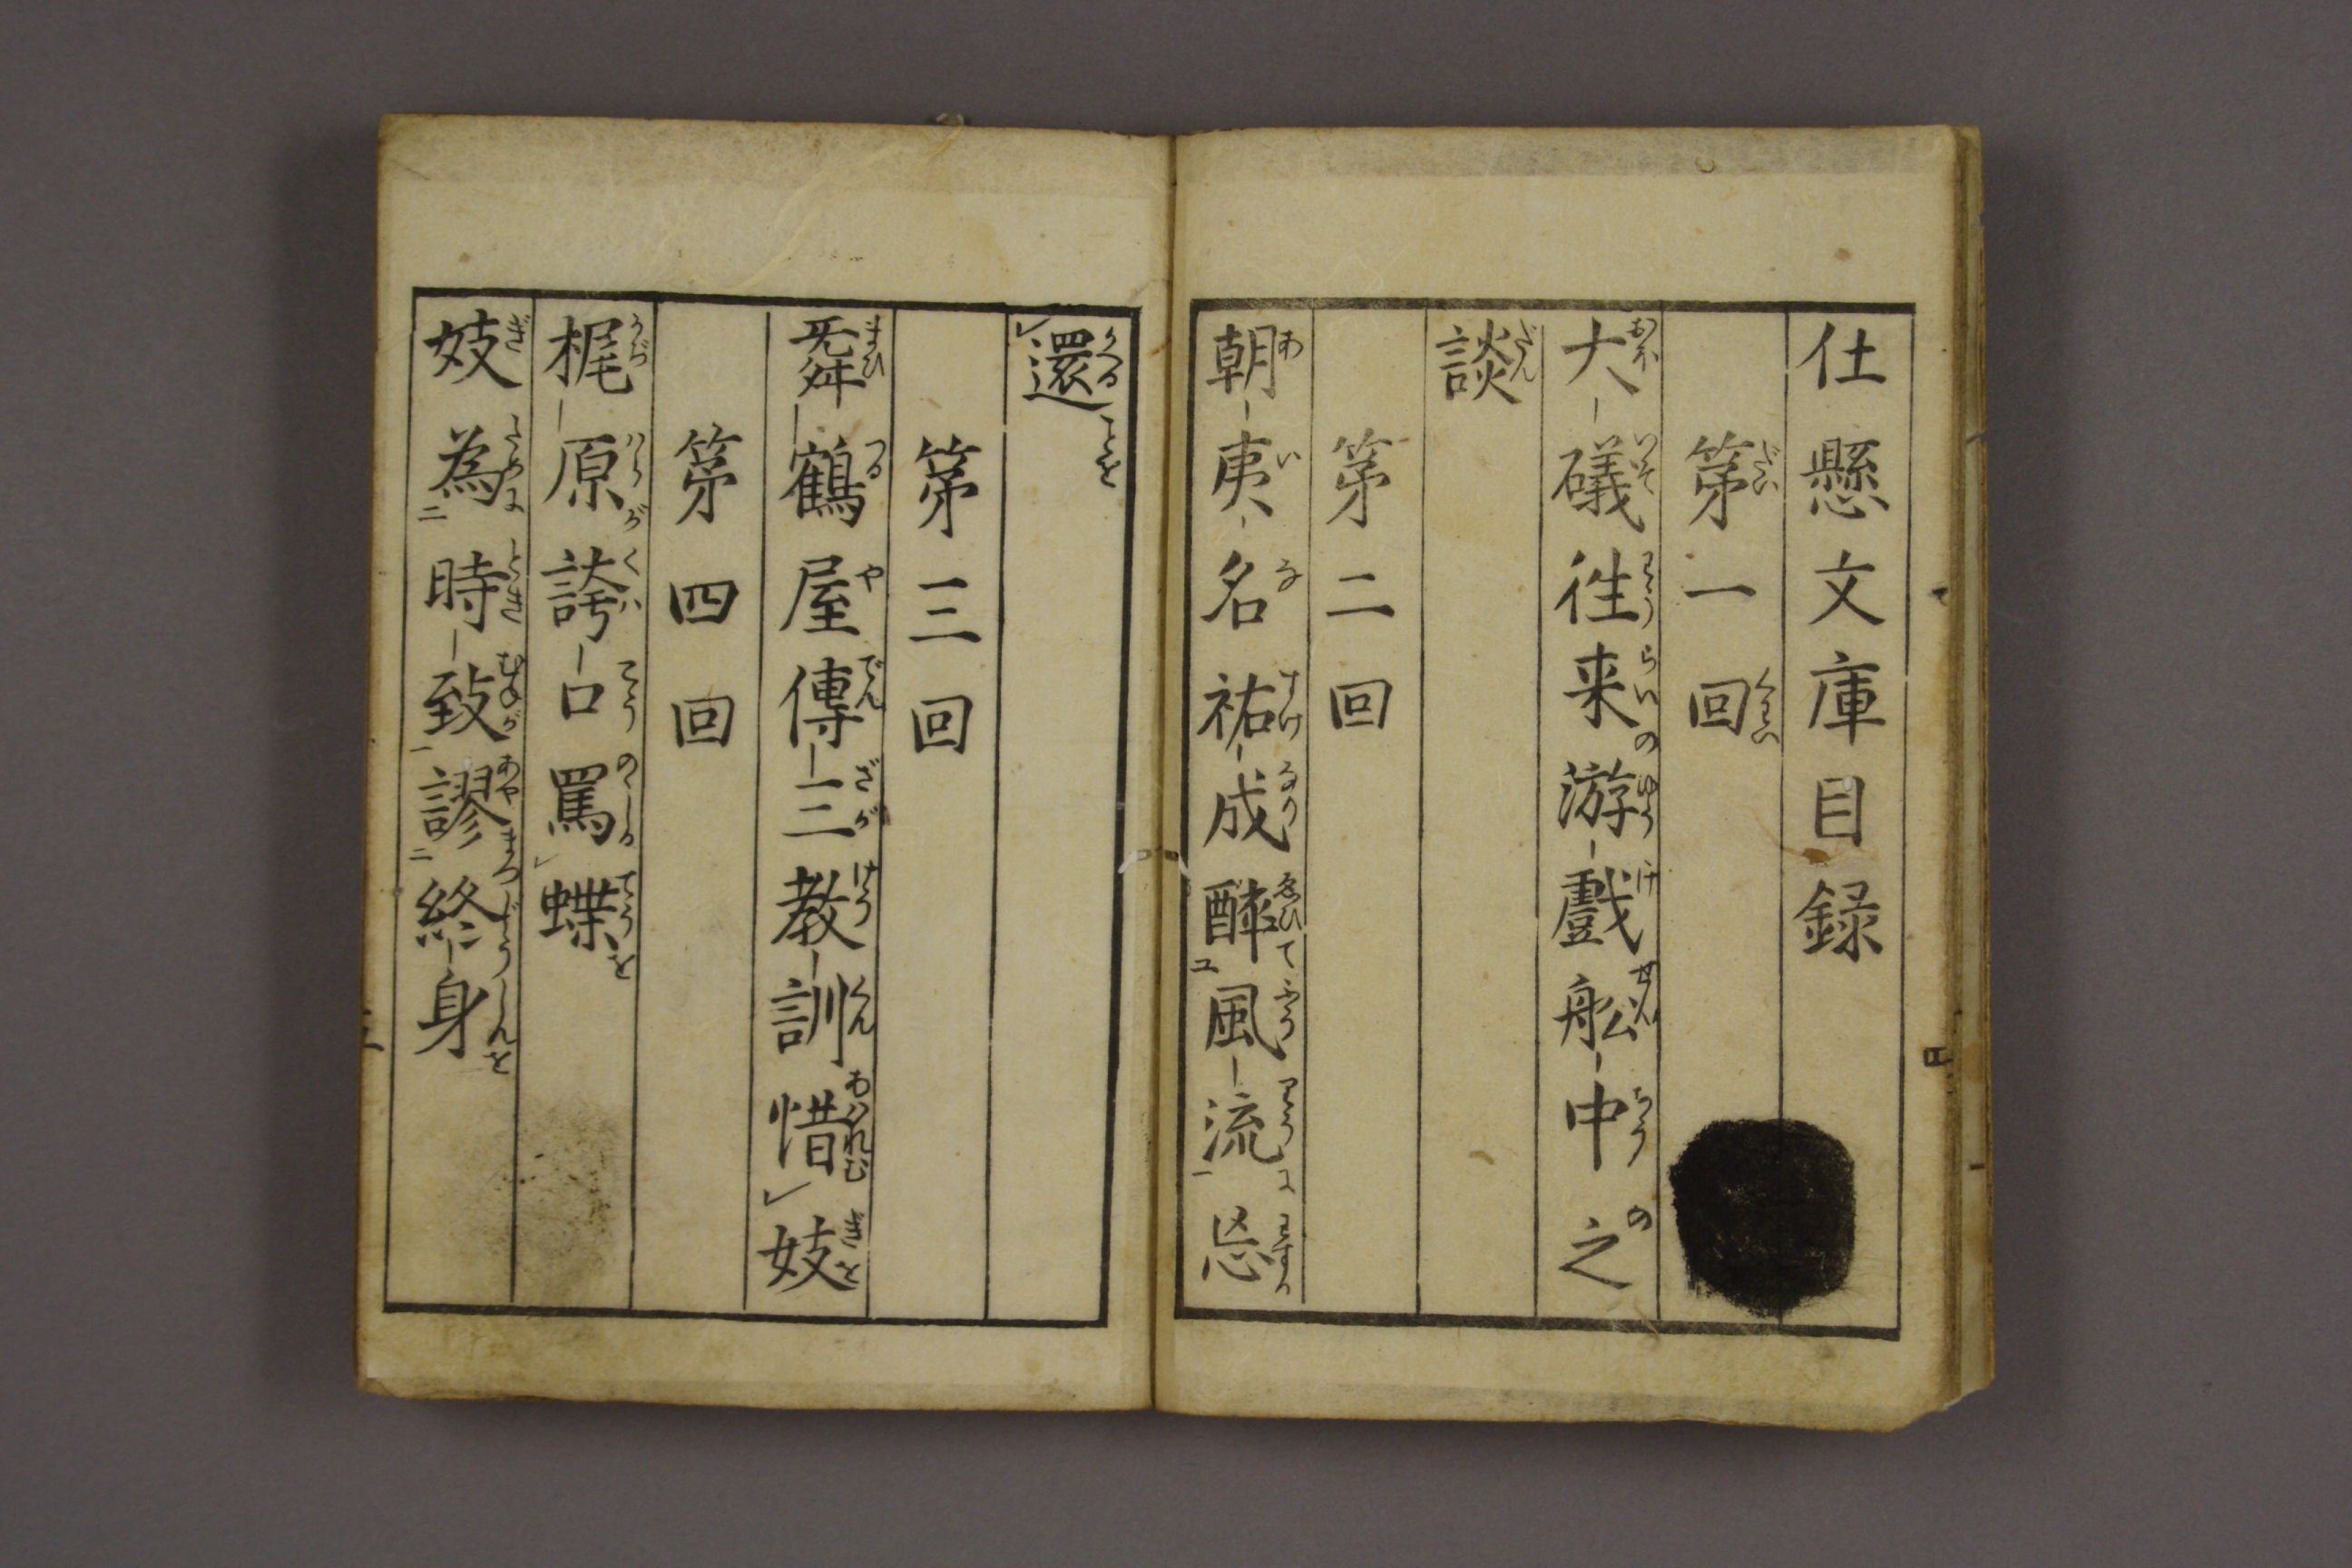 仕懸文庫目録
第一回
大礒徃来游戲舩中之
談
第二回
朝夷名祐成酔風流忘
還
第三回
舞鶴屋傳三教訓惜妓
第四回
梶原誇口罵蝶
妓為時致謬終身